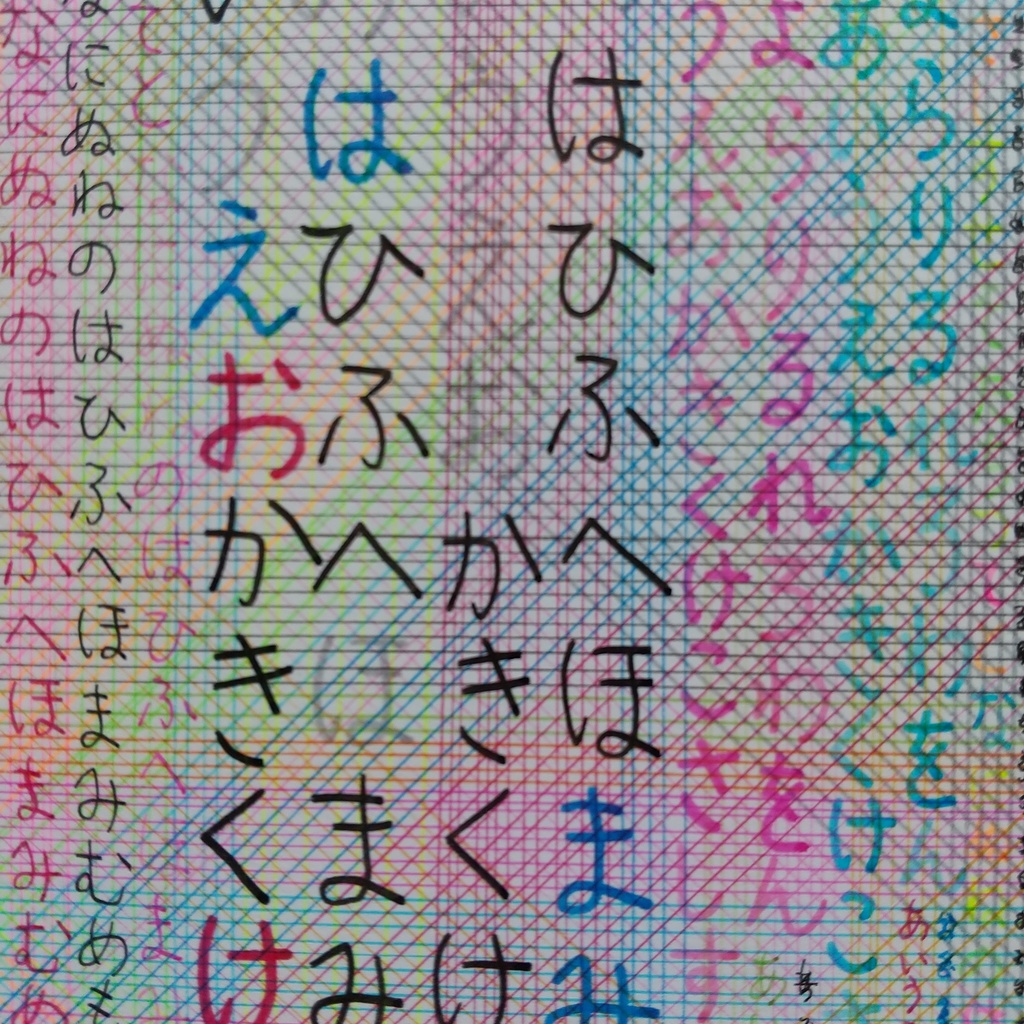 よらりるれろわをん
あいうえおかきくけこ
あいう
よらりるれろわをん
うえおかきくけこさしす
はひふへほまみ
かきくけ
はひふへまみ
えおかきくけ
てと
のはひふへ
ま
なにぬねのはひふへほまみむめも
なにぬねのはひふへほまみむめ